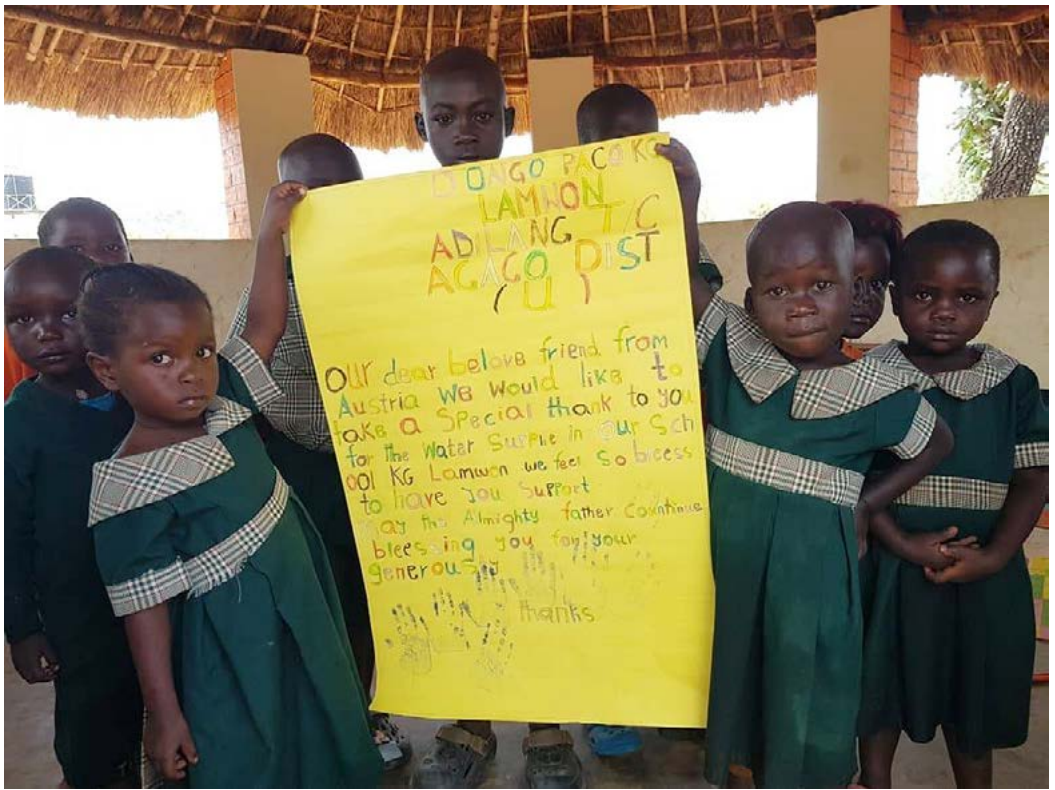 DONGO PACO KG
LAMWON
ADILANG T/C
AGAGO DIST
(U)
Our dear belove friend from
Austria We Would like to
take a Special thank to you
for the Water Supplie in our Sch
ool KG Lamwon we feel So bleess
to have you Support
may the Almighty father Countinue
bleessing you for your
generousity
Thanks